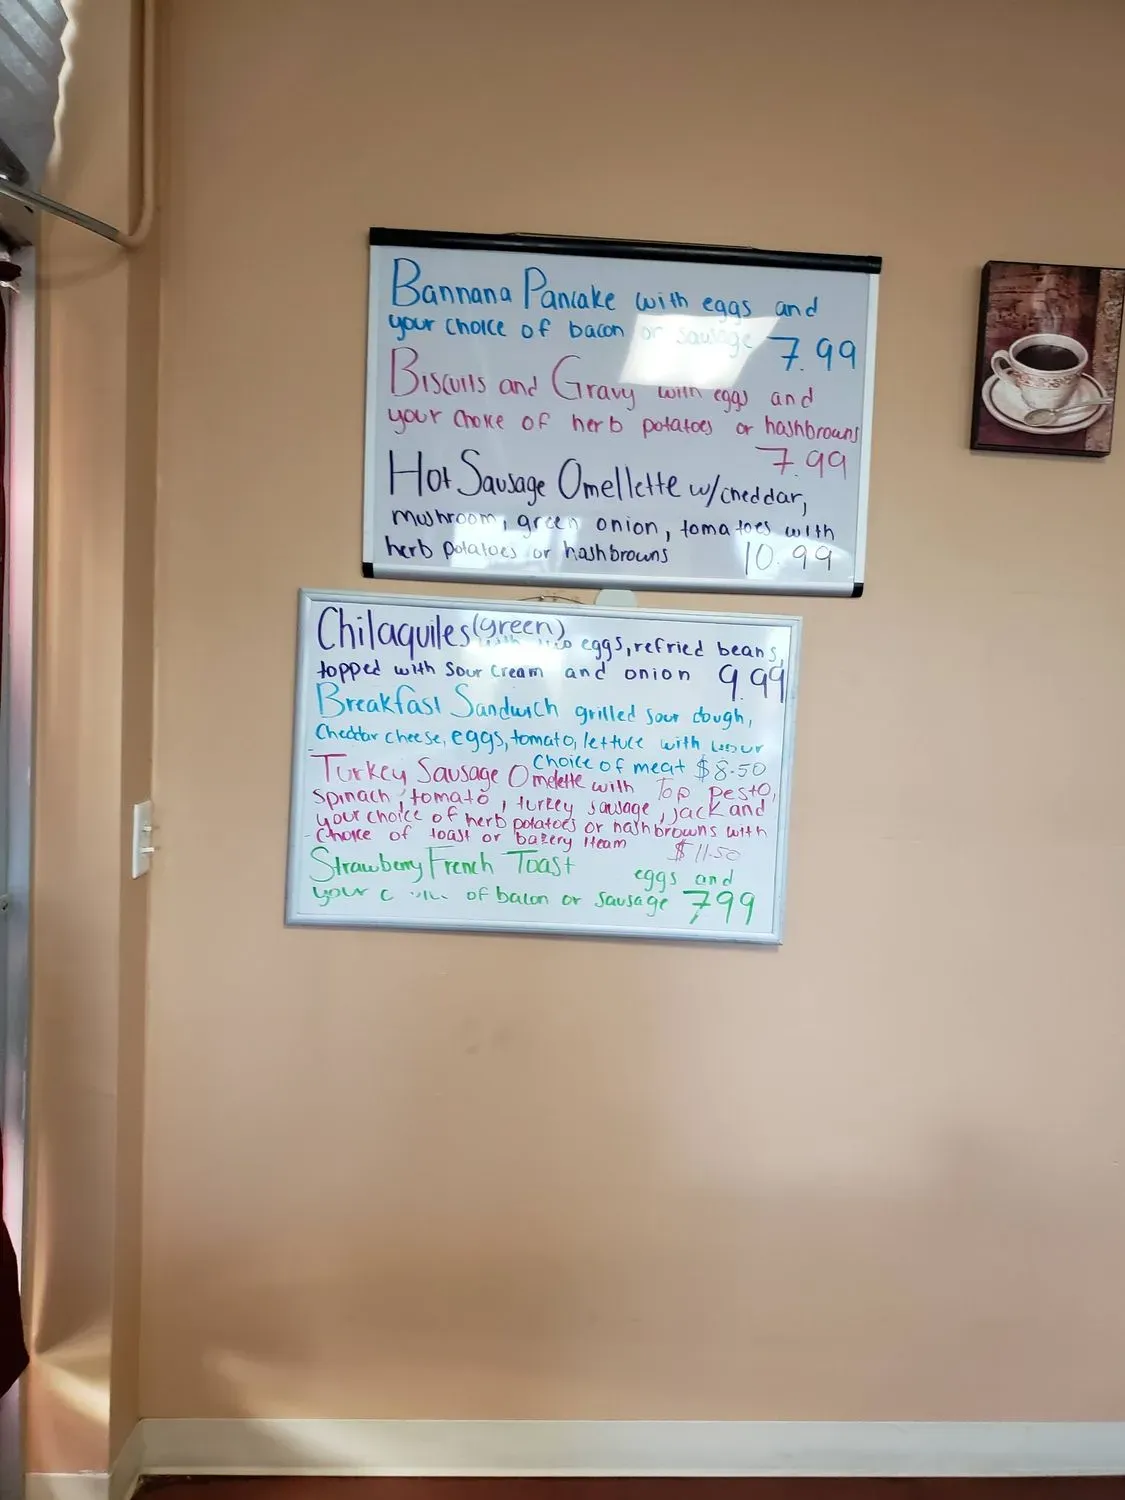 Bannana Pancake with eggs and
your choice of bacon or sausage 7.99
Biscuits and Gravy with eggs and
your choice of herb potatoes or hashbrowns
7.99
Hot Sausage Omellette w/cheddar,
mushroom, green onion, tomatoes with
herb potatoes or hashbrowns 10.99
Chilaquiles (green)
with two eggs, refried beans,
topped with sour cream and onion 9.99
Breakfast Sandwich grilled sour dough,
Cheddar cheese, eggs, tomato, lettuce with your
choice of meat $8.50
Turkey Sausage Omelette with Top pesto,
spinach, tomato, turkey sausage, jack and
your choice of herb potatoes or hashbrowns with
choice of toast or bakery item $11.50
Strawberry French Toast eggs and
your of bacon or sausage 799